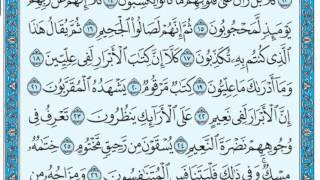 كَلَّا بَلْ رَانَ عَلَىٰ قُلُوبِهِم مَّا كَانُوا يَكْسِبُونَ ١٤ كَلَّا إِنَّهُمْ عَن رَّبِّهِمْ
يَوْمَئِذٍ لَّمَحْجُوبُونَ ١٥ ثُمَّ إِنَّهُمْ لَصَالُوا الْجَحِيمِ ١٦ ثُمَّ يُقَالُ هَٰذَا
الَّذِي كُنتُم بِهِ تُكَذِّبُونَ ١٧ كَلَّا إِنَّ كِتَٰبَ الْأَبْرَارِ لَفِي عِلِّيِّينَ ١٨
وَمَا أَدْرَىٰكَ مَا عِلِّيُّونَ ١٩ كِتَٰبٌ مَّرْقُومٌ ٢٠ يَشْهَدُهُ الْمُقَرَّبُونَ ٢١
إِنَّ الْأَبْرَارَ لَفِي نَعِيمٍ ٢٢ عَلَى الْأَرَائِكِ يَنظُرُونَ ٢٣ تَعْرِفُ فِي
وُجُوهِهِمْ نَضْرَةَ النَّعِيمِ ٢٤ يُسْقَوْنَ مِن رَّحِيقٍ مَّخْتُومٍ ٢٥ خِتَٰمُهُ
مِسْكٌ وَفِي ذَٰلِكَ فَلْيَتَنَافَسِ الْمُتَنَٰفِسُونَ ٢٦ وَمِزَاجُهُ مِن